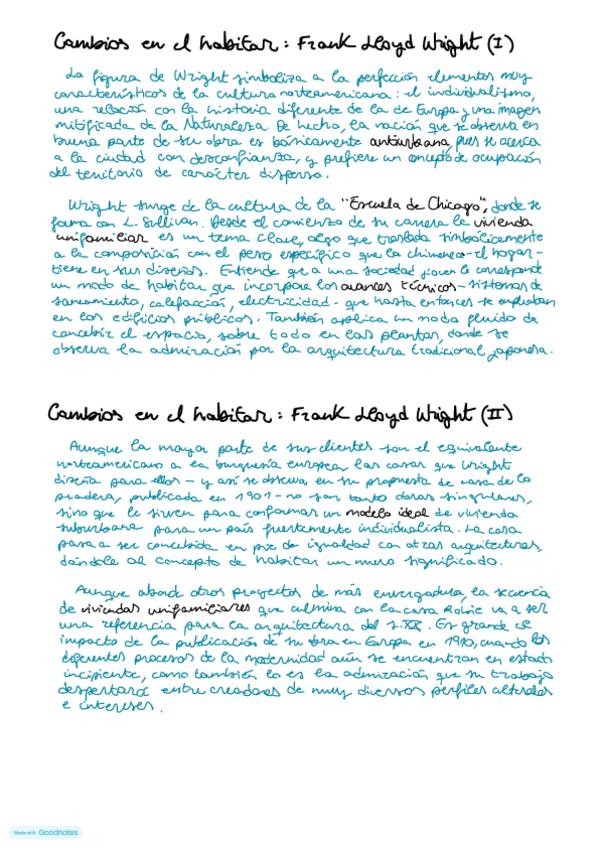 Cambios en el habitar: Frank Lloyd Wright (I)
La figura de Wright simboliza a la perfección elementos muy
característicos de la cultura norteamericana: el individualismo,
una relación con la historia diferente de la de Europa y una imagen
mitificada de la Naturaleza. De hecho, la noción que se observa en
buena parte de su obra es básicamente antiurbana, pues se acerca
a la ciudad con desconfianza, y prefiere un concepto de ocupación
del territorio de carácter disperso.
Wright surge de la cultura de la "Escuela de Chicago", donde se
forma con L. Sullivan. Desde el comienzo de su carrera la vivienda
unifamiliar es un tema clave, algo que traslada simbólicamente
a la composición con el peso específico que la chimenea - el hogar -
tiene en sus diseños. Entiende que a una sociedad joven le corresponde
un modo de habitar que incorpore los avances técnicos - sistemas de
saneamiento, calefacción, electricidad - que hasta entonces se empleaban
en los edificios públicos. También aplica un modo fluido de
concebir el espacio, sobre todo en las plantas, donde se
observa la admiración por la arquitectura tradicional japonesa.
Cambios en el habitar: Frank Lloyd Wright (II)
Aunque la mayor parte de sus clientes son el equivalente
norteamericano a la burguesía europea, las casas que Wright
diseña para ellos - y así se observa en su propuesta de casa de la
pradera, publicada en 1901 - no son tanto obras singulares,
sino que le sirven para conformar un modelo ideal de vivienda
suburbana para un país fuertemente individualista. La casa
pasa a ser concebida en pie de igualdad con otras arquitecturas,
dándole al concepto de habitar un nuevo significado.
Aunque aborde otros proyectos de más envergadura, la secuencia
de viviendas unifamiliares que culmina con la casa Robie va a ser
una referencia para la arquitectura del s.XX. Es grande el
impacto de la publicación de su obra en Europa en 1910, cuando los
diferentes procesos de la modernidad aún se encuentran en estado
incipiente, como también lo es la admiración que su trabajo
despertará entre creadores de muy diversos perfiles
e intereses.
Made with Goodnotes